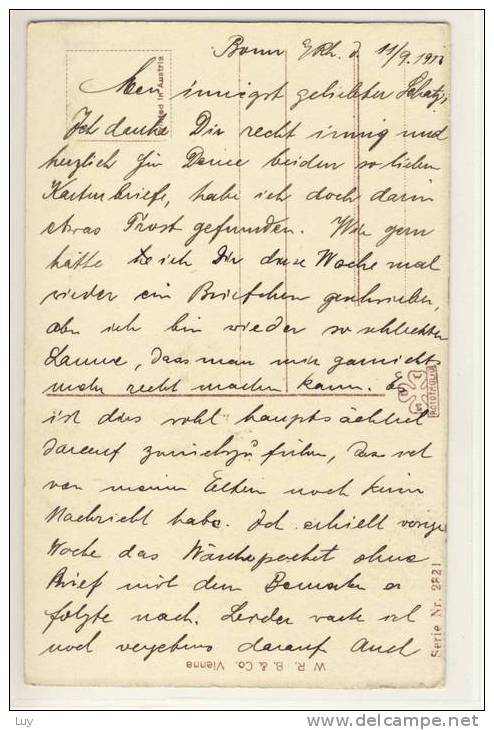 Bonn a/Rh. d. 11/9. 19
Mein innigst geliebter Schatz,
Ich danke Dir recht innig und
herzlich für Deine beiden so lieben
Kartenbriefe, habe ich doch darin
etwas Trost gefunden. Wie gern
hätte ich Dir diese Woche mal
wieder ein Briefchen geschrieben,
aber ich bin wieder so schlechter
Laune, dass man mir garnichts
mehr recht machen kann. Es
ist das wohl hauptsächlich
darauf zurückzuführen, dass ich
von meinen Eltern noch keine
Nachricht habe. Ich erhielt vorige
Woche das Wäschepacket ohne
Brief mit dem Bemerken er
folgte nach. Leider warte ich
noch vergebens darauf. Auch
Printed in Austria
ROTOPHOT
Serie Nr. 2821
W. R. B. & Co. Vienna
Luy
delcampe.net